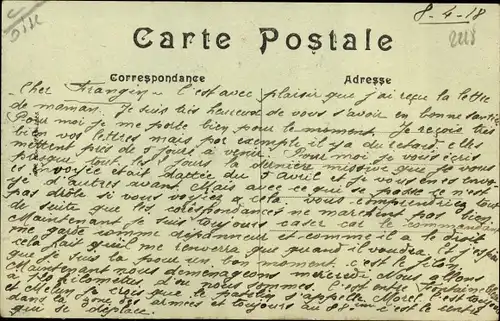 8-4-18
Carte Postale
Correspondance
Adresse
Cher Frangin - C'est avec plaisir que j'ai reçu la lettre
de maman. Je suis très heureux de vous savoir en bonne santé
Pour moi je me porte bien pour le moment. Je reçois très
bien vos lettres mais par exemple il y a du retard, elles
mettent près de 5 jours à venir. Pour moi je vous écris
presque tout les jours la dernière missive que je vous
ai envoyée était dattée du 5 avril et vous en avez
d'autres avant. Mais avec ce qui se passe ce n'est
pas drôle si vous voyiez cela vous comprendriez tout
de suite que les corespondances ne marchent pas bien
Maintenant je suis toujours caser car le commandant
me garde comme dépanneur et comme il a le droit
cela fait qu'il me renverra que quand il voudra
que je suis là pour un bon moment. c'est le filon
Maintenant nous demenageons mercredi Nous allons
à kilomètres d'où nous sommes. C'est entre Fontaine
et Melun je crois que le patelin s'appelle Moret. C'est toujours
dans la zone des armées et toujours au c'est le centre
qui se déplace.